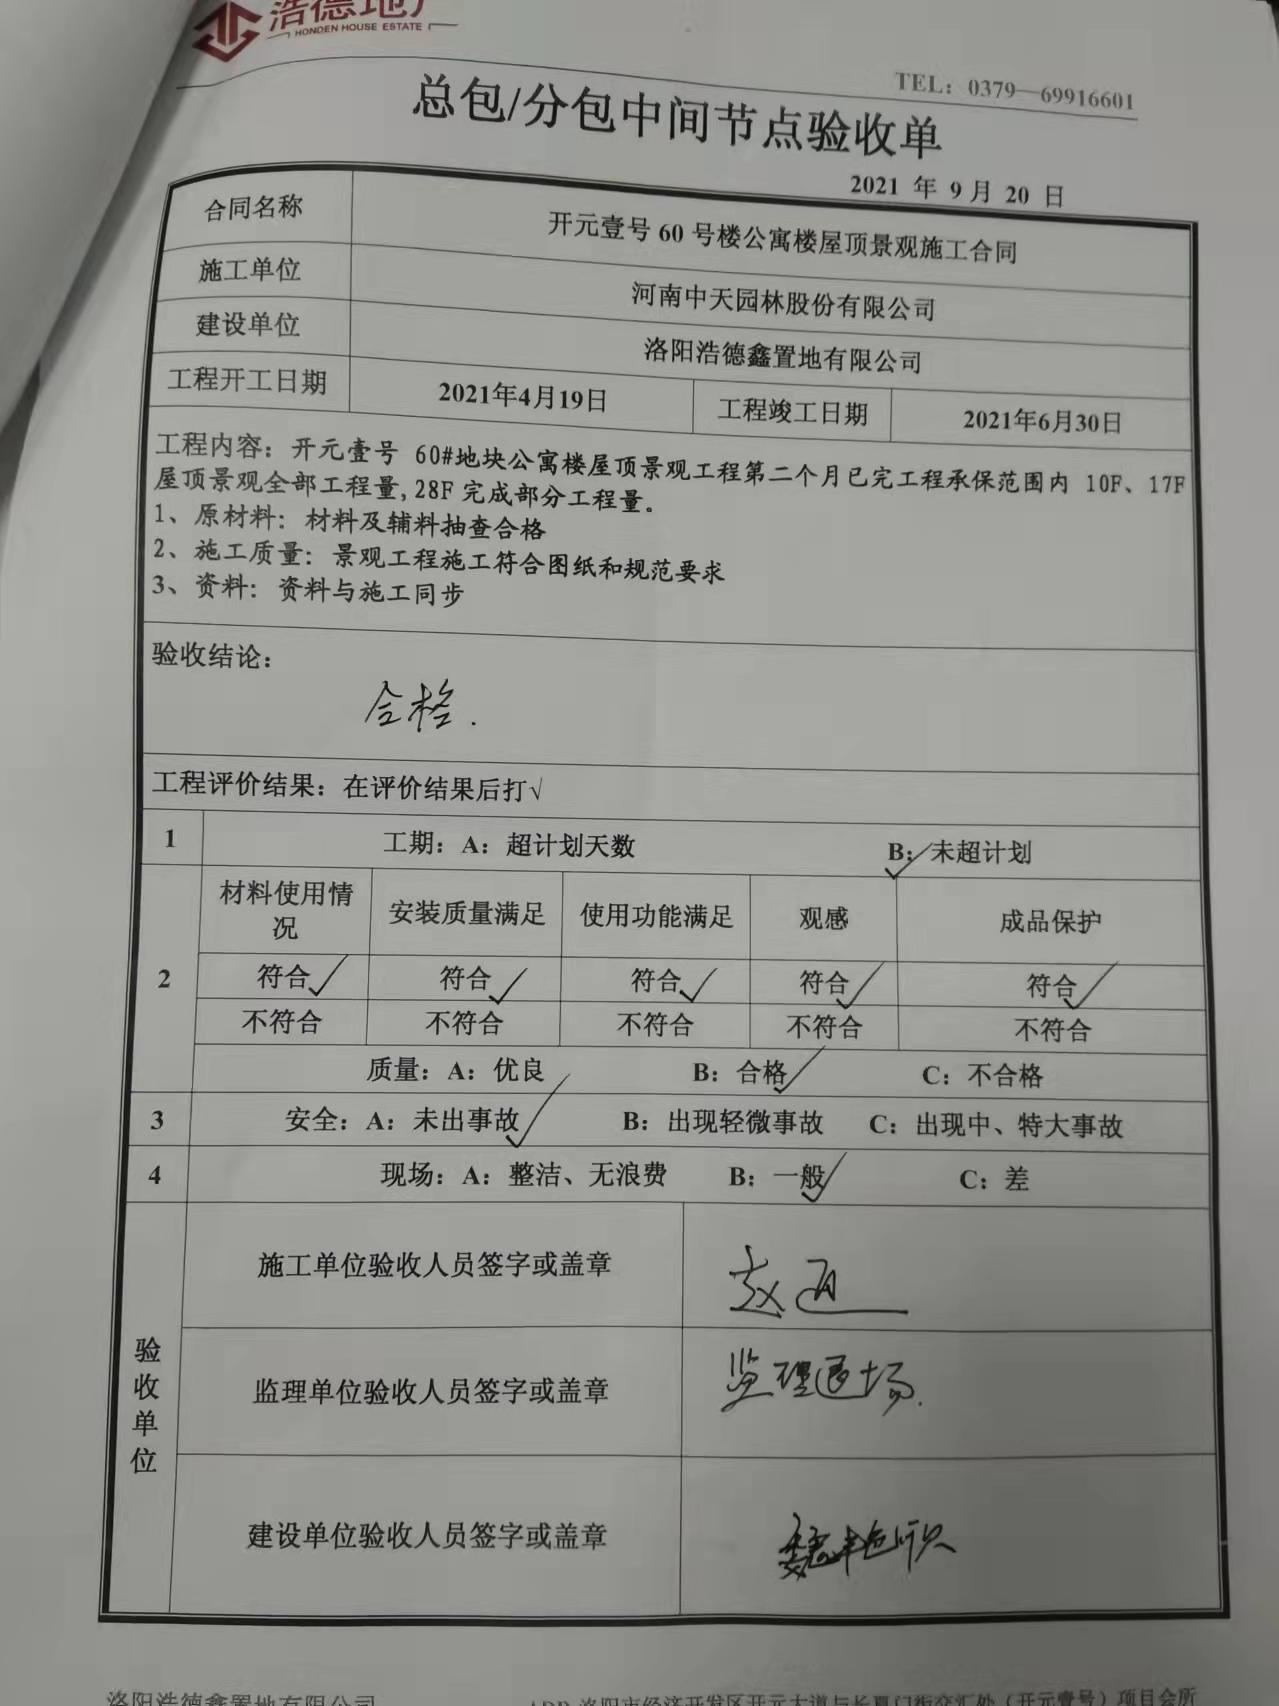 浩德地产
HONDEN HOUSE ESTATE
TEL：0379—69916601
总包/分包中间节点验收单
2021 年 9 月 20 日
合同名称 开元壹号 60 号楼公寓楼屋顶景观施工合同
施工单位 河南中天园林股份有限公司
建设单位 洛阳浩德鑫置地有限公司
工程开工日期 2021年4月19日 工程竣工日期 2021年6月30日
工程内容：开元壹号 60#地块公寓楼屋顶景观工程第二个月已完工程承保范围内 10F、17F
屋顶景观全部工程量,28F 完成部分工程量。
1、原材料：材料及辅料抽查合格
2、施工质量：景观工程施工符合图纸和规范要求
3、资料：资料与施工同步
验收结论：
合格.
工程评价结果：在评价结果后打√
1 工期：A：超计划天数 B：✓未超计划
材料使用情况 安装质量满足 使用功能满足 观感 成品保护
2 符合✓ 符合✓ 符合✓ 符合✓ 符合✓
不符合 不符合 不符合 不符合 不符合
质量：A：优良 B：合格✓ C：不合格
3 安全：A：未出事故✓ B：出现轻微事故 C：出现中、特大事故
4 现场：A：整洁、无浪费 B：一般✓ C：差
验收单位
施工单位验收人员签字或盖章 赵通
监理单位验收人员签字或盖章 监理退场.
建设单位验收人员签字或盖章 魏
洛阳浩德鑫置地有限公司 ADD 洛阳市经济开发区开元大道与长夏门街交汇处（开元壹号）项目会所